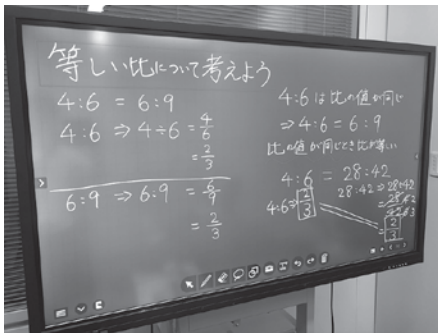 等しい比について考えよう
4:6 = 6:9
4:6 ⇒ 4÷6 = 4/6
= 2/3
6:9 ⇒ 6:9 = 6/9
= 2/3
4:6は比の値が同じ
⇒ 4:6 = 6:9
比の値が同じとき比が等しい
4:6 = 28:42
4:6⇒ 2/3
28:42 ⇒ 28÷42
= 2/3